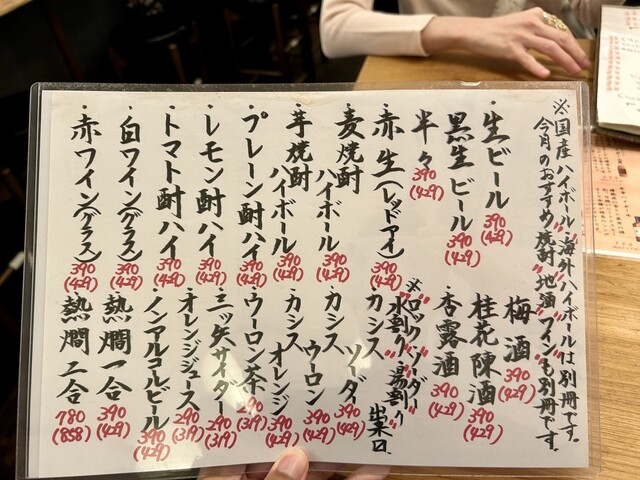 ※国産ハイボール、海外ハイボールは別冊です。
今月のおすすめ焼酎"地酒"ワイン"も別冊です。
・生ビール 390 (429)
・黒生ビール 390 (429)
・半々 390 (429)
・赤生(レッドアイ) 390 (429)
・麦焼酎ハイボール 390 (429)
・芋焼酎ハイボール 390 (429)
・プレーン酎ハイ 390 (429)
・レモン酎ハイ 390 (429)
・トマト酎ハイ 390 (429)
・白ワイン(グラス) 390 (429)
・赤ワイン(グラス) 390 (429)
・梅酒 390 (429)
・桂花陳酒 390 (429)
・杏露酒 390 (429)
※ロック"ソーダー"
水割り"湯割り"出来ロ
・カシスソーダー 390 (429)
・カシスウーロン 390 (429)
・カシスオレンジ 390 (429)
・ウーロン茶 290 (319)
・三ッ矢サイダー 290 (319)
・オレンジジュース 290 (319)
・ノンアルコルビール 390 (429)
・熱燗一合 390 (429)
・熱燗二合 780 (858)